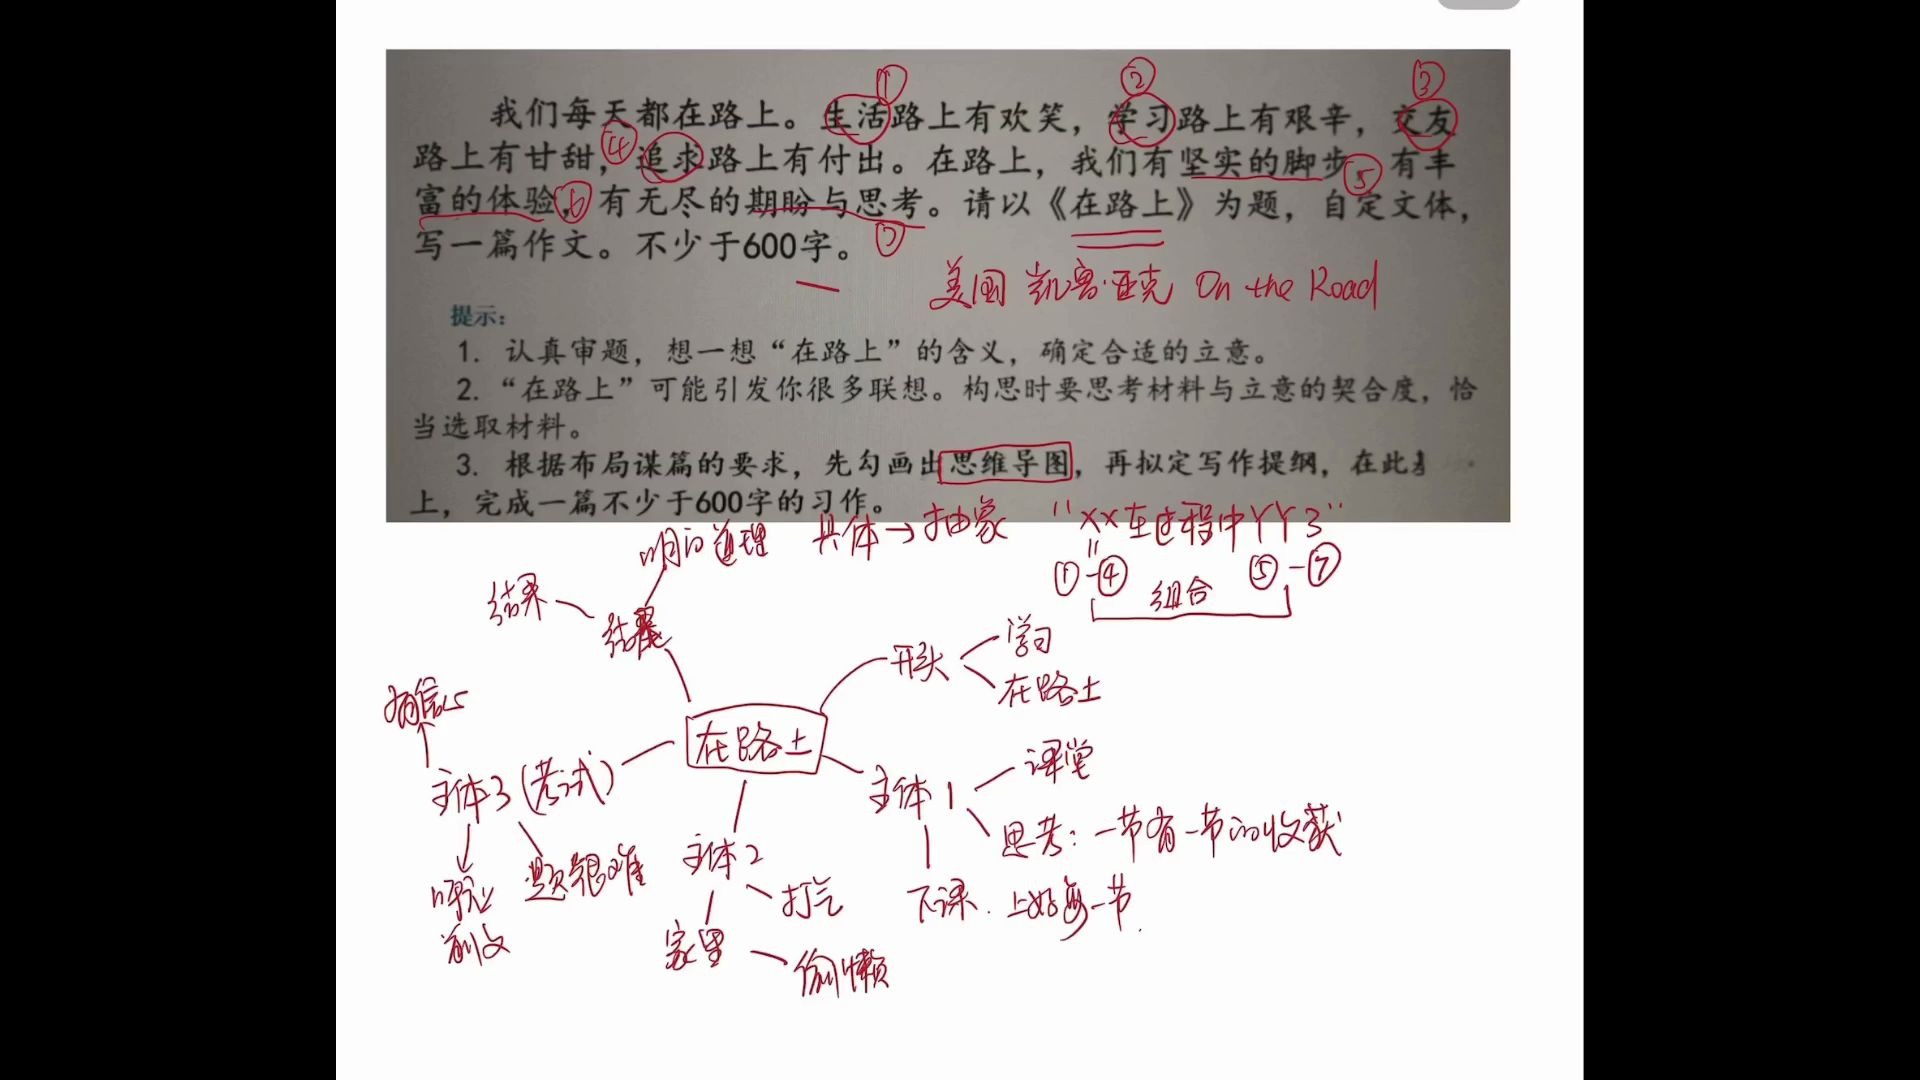 我们每天都在路上。生活路上有欢笑，学习路上有艰辛，交友
路上有甘甜，追求路上有付出。在路上，我们有坚实的脚步，有丰
富的体验，有无尽的期盼与思考。请以《在路上》为题，自定文体，
写一篇作文。不少于600字。
① ② ③
④ ⑤
⑥ ⑦
美国 凯鲁·亚克 On the Road
提示：
1. 认真审题，想一想“在路上”的含义，确定合适的立意。
2. “在路上”可能引发你很多联想。构思时要思考材料与立意的契合度，恰
当选取材料。
3. 根据布局谋篇的要求，先勾画出思维导图，再拟定写作提纲，在此
上，完成一篇不少于600字的习作。
明白道理 具体→抽象 “XX在过程中YY了”
①-④ ⑤-⑦
组合
结果
结尾
开头
学习
在路上
有信心
在路上
主体3(考试)
主体1
课堂
思考：一节有一节的收获
下课. 上好每一节.
主体2
打气
家里
偷懒
题很难
呼应
前文